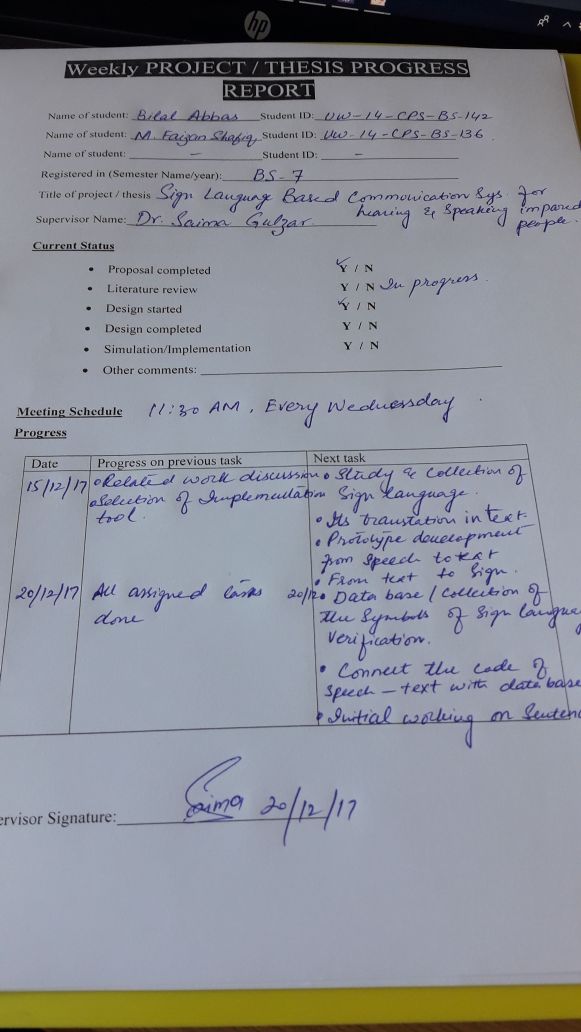 hp
Weekly PROJECT / THESIS PROGRESS
REPORT
Name of student: Bilal Abbas Student ID: UW-14-CPS-BS-142
Name of student: M. Faizan Shafiq Student ID: UW-14-CPS-BS-136
Name of student: - Student ID: -
Registered in (Semester Name/year): BS-7
Title of project / thesis Sign Language Based Communication Sys. for
hearing & Speaking impared
people.
Supervisor Name: Dr. Saima Gulzar.
Current Status
• Proposal completed Y / N
• Literature review Y / N In progress.
• Design started Y / N
• Design completed Y / N
• Simulation/Implementation Y / N
• Other comments:
Meeting Schedule 11:30 AM, Every Wednesday.
Progress
Date Progress on previous task Next task
15/12/17 • Related work discussion • Study & Collection of
• Selection of Implementation Sign language.
tool.
• Its translation in text.
• Prototype development
from Speech to text
• From text to Sign.
20/12/17 All assigned tasks 20/12 • Data base / Collection of
done the Symbols of Sign langua
Verification.
• Connect the code of
Speech - text with data base
• Initial working on Senten
ervisor Signature: Saima 20/12/17